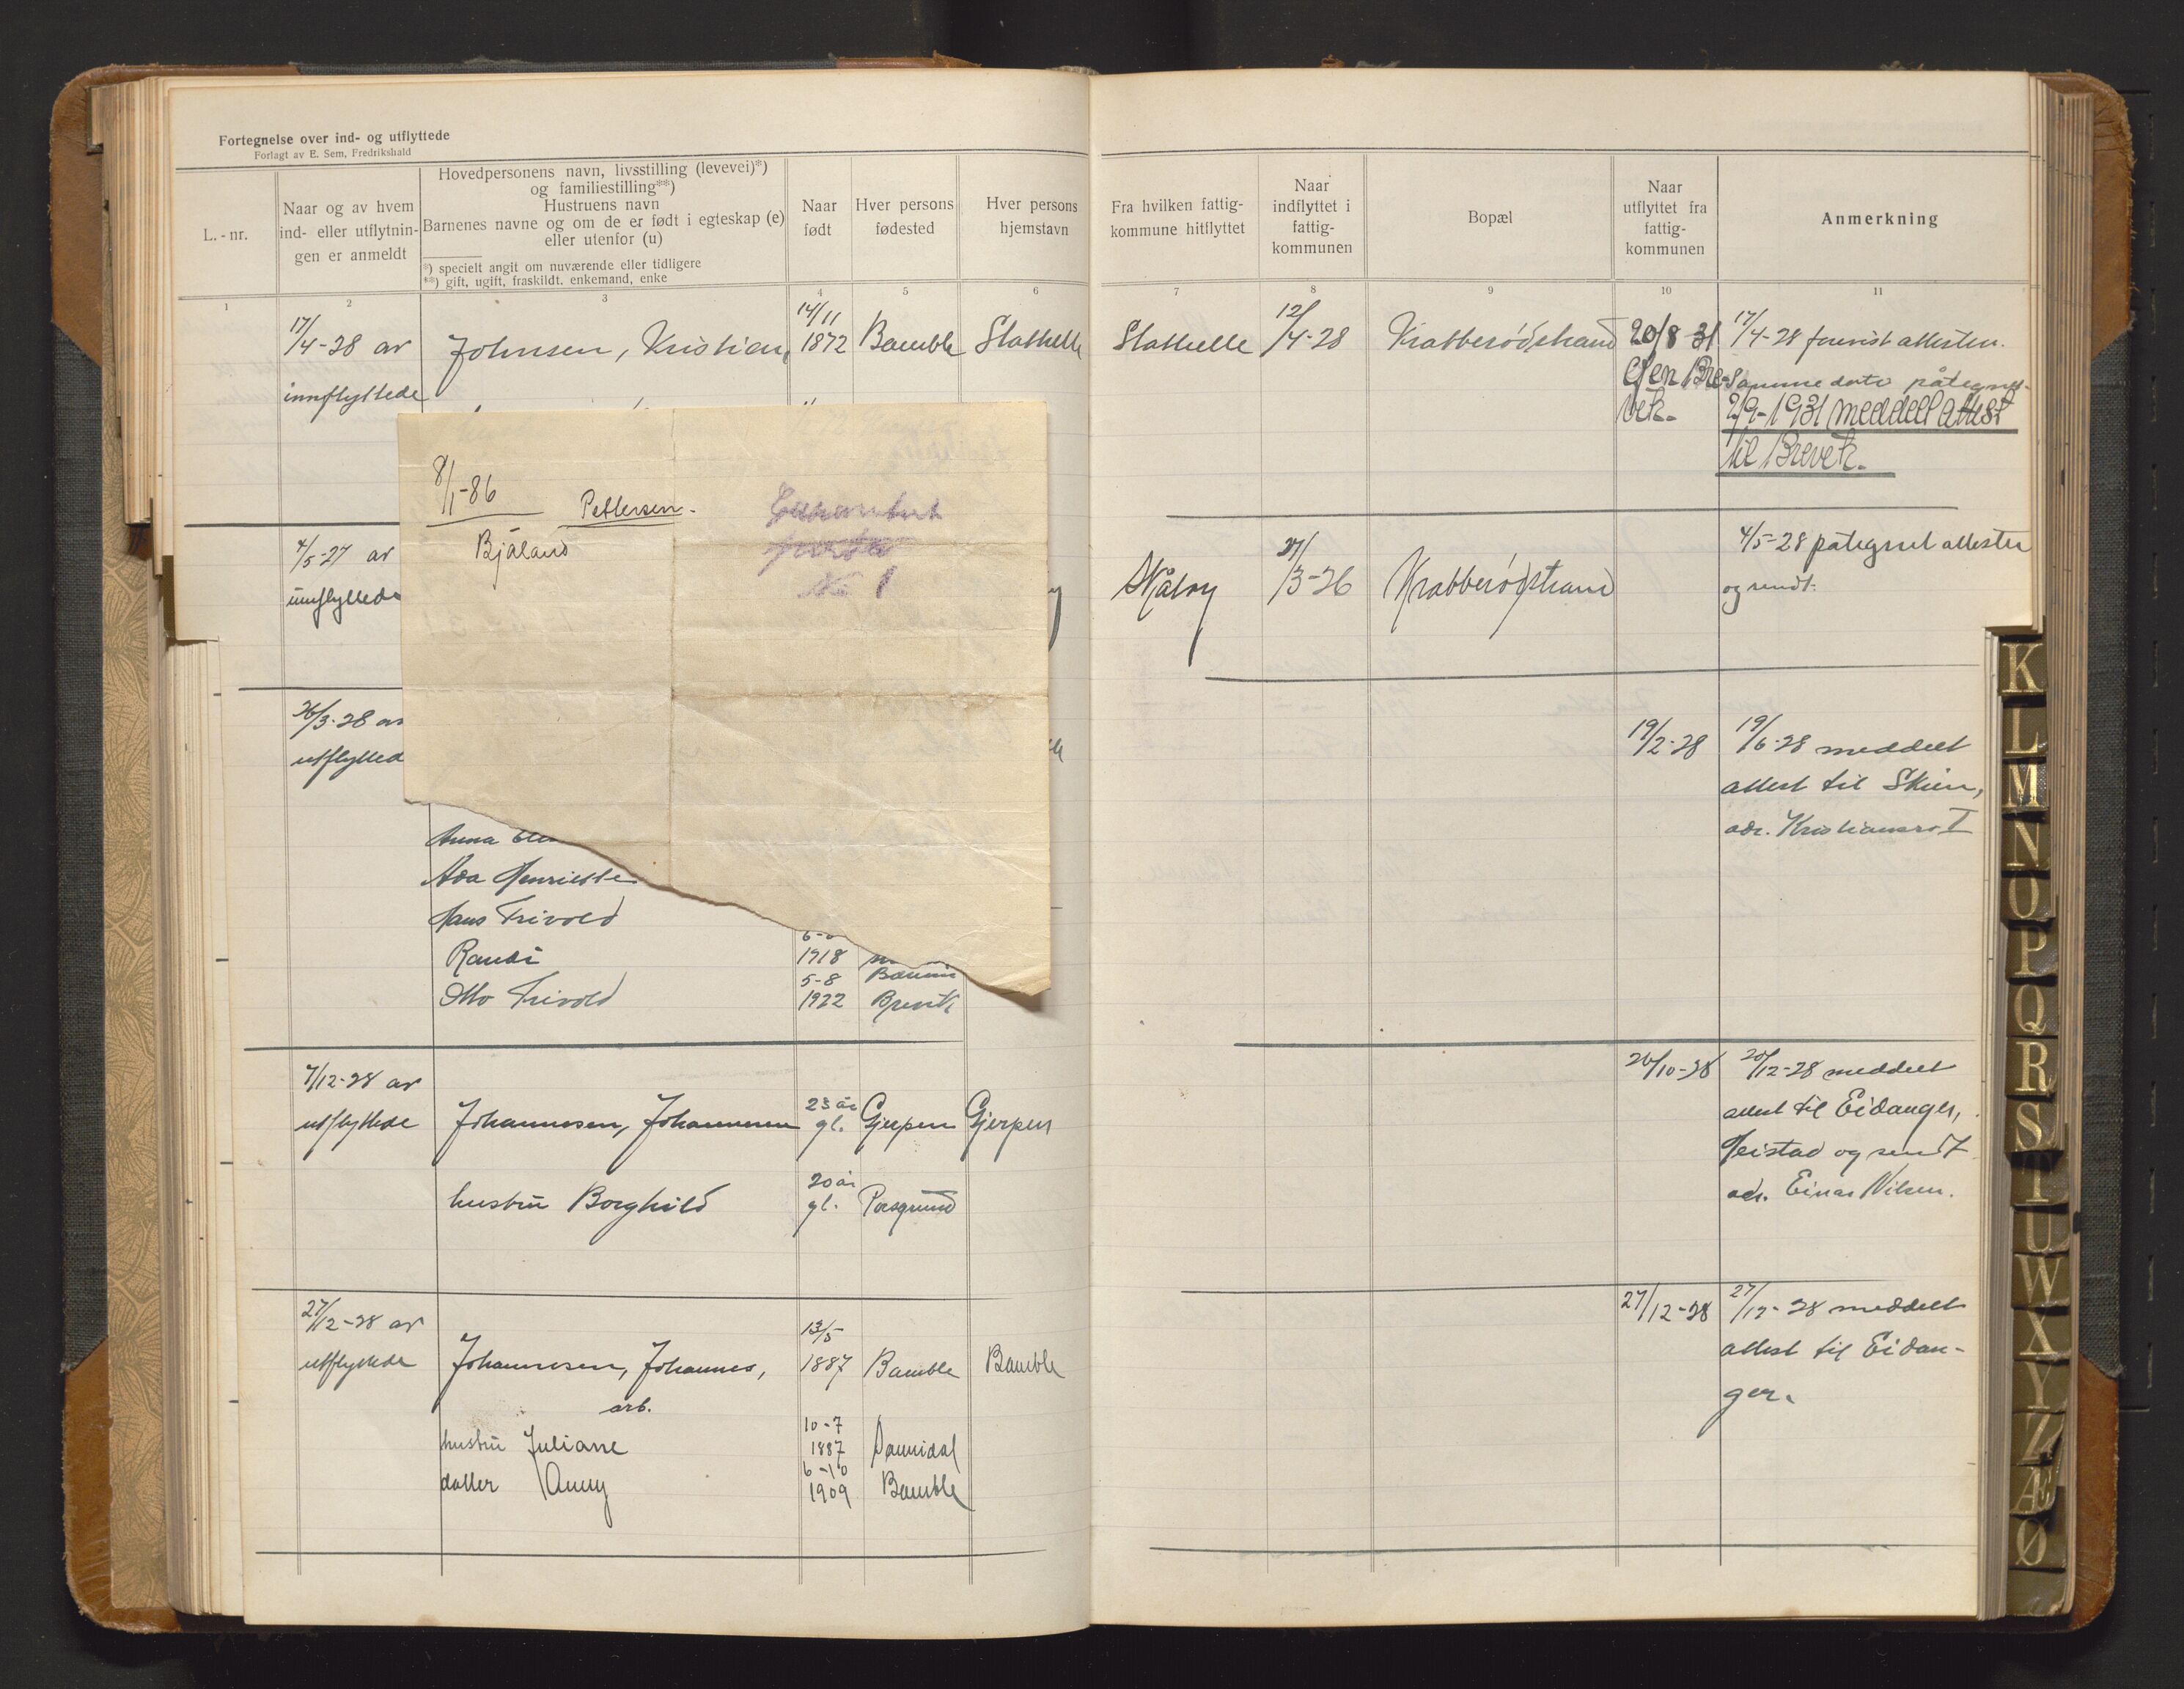 Fortegnelse over ind- og utflyttede
Forlagt av E. Sem, Fredrikshald
L.-nr.
Naar og av hvem ind- eller utflytnin-gen er anmeldt
Hovedpersonens navn, livsstilling (levevei)*)
og familiestilling**)
Hustruens navn
Barnenes navne og om de er født i egteskap (e)
eller utenfor (u)
*) specielt angit om nuværende eller tidligere
**) gift, ugift, fraskildt. enkemand, enke
Naar født
Hver persons fødested
Hver persons hjemstavn
Fra hvilken fattig-kommune hitflyttet
Naar indflyttet i fattig-kommunen
Bopæl
Naar utflyttet fra fattig-kommunen
Anmerkning
1 2 3 4 5 6 7 8 9 10 11
17/4-28 av
innflyttede
Johnsen, Kristian,
14/11
1872
Bamble
Stathelle
Stathelle
12/4-28
Krabberødstrand
20/8 31
igjen Bre-
vik.
17/4-28 forevist attesten.
Samme dato påtegnet
2/9-1931 meddelt attest
til Brevik.
8/1-86
Pettersen.
Bjåland
№ 1
4/5-27 av
innflyttede
Skåtøy
27/3-26
Krabberødstrand
4/5-28 påtegnet attesten
og sendt.
26/3-28 av
utflytted
19/2-28
19/6-28 meddelt
attest til Skien,
adr. Kristiansro I
Anna
Ada Henriette
Hans Trivold
Randi
1918
5-8
Otto Trivold
1922
Brevik
7/12-28 av
utflyttede
Johannesen, Johannesen
23 år
gl.
Gjerpen
Gjerpen
hustru Borghild
20 år
gl.
Porsgrund
20/10-28
20/12-28 meddelt
attest til Eidanger,
Heistad og sendt
adr. Einar Nilsen.
27/12-28 av
utflyttede
Johannesen, Johannes,
arb.
13/5
1887
Bamble
Bamble
hustru Juliane
10-7
1887
Sannidal
datter Anny
6-10
1909
Bamble
27/12-28
27/12-28 meddelt
attest til Eidan-
ger.
K
L
M
N
O
P
Q
R
S
T
U
W
X
Y
Z
Æ
Ø